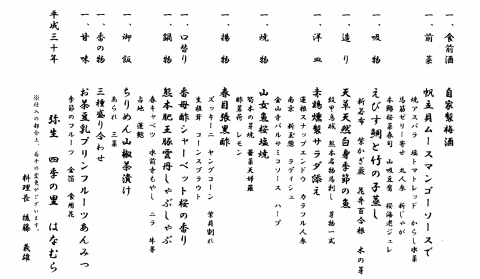 一、食前酒　自家製梅酒
一、前菜　帆立貝ムースマンゴーソースで
焼アスパラ　塩トマトレッド　からし水菜
馬筋ゼリー寄せ　丸人参　新じゃが
本鱒桜菜寿司　山吸豆腐　桜海老ジュレ
一、吸物　えびす鯛と竹の子蒸し
新若布　紫かぎ蕨　花弁百合根　木の芽
一、造り　天草天然白身季節の魚
紋甲烏賊　熊本名物馬刺し　芽物一式
一、洋皿　赤鶏燻製サラダ添え
蓮根スナップエンドウ　カラフル人参
南京　新玉葱　ラディシュ
金山寺バルサミコソース　ハーブ
一、焼物　山女魚桜塩焼
筍木の芽焼　蕗薹天婦羅
酢茗荷　レモン
一、揚物　春目張黒酢
ズッキーニ　ヤングコーン　紫貝割れ
生椎茸　コーンスプラウト
一、口替り　香母酢シャーベット桜の香り
一、鍋物　熊本肥王豚雲丹しゃぶしゃぶ
春キャベツ　水前寺もやし　ニラ　牛蒡
占地　蓮麺
一、御飯　ちりめん山椒茶漬け
あられ　三葉
一、香の物　三種盛り合わせ
一、甘味　お茶豆乳プリンフルーツあんみつ
季節のフルーツ　金箔　食用花
平成三十年　弥生　四季の里　はなむら
※仕入の都合上、若干の変更がございます。
料理長　後藤　義雄